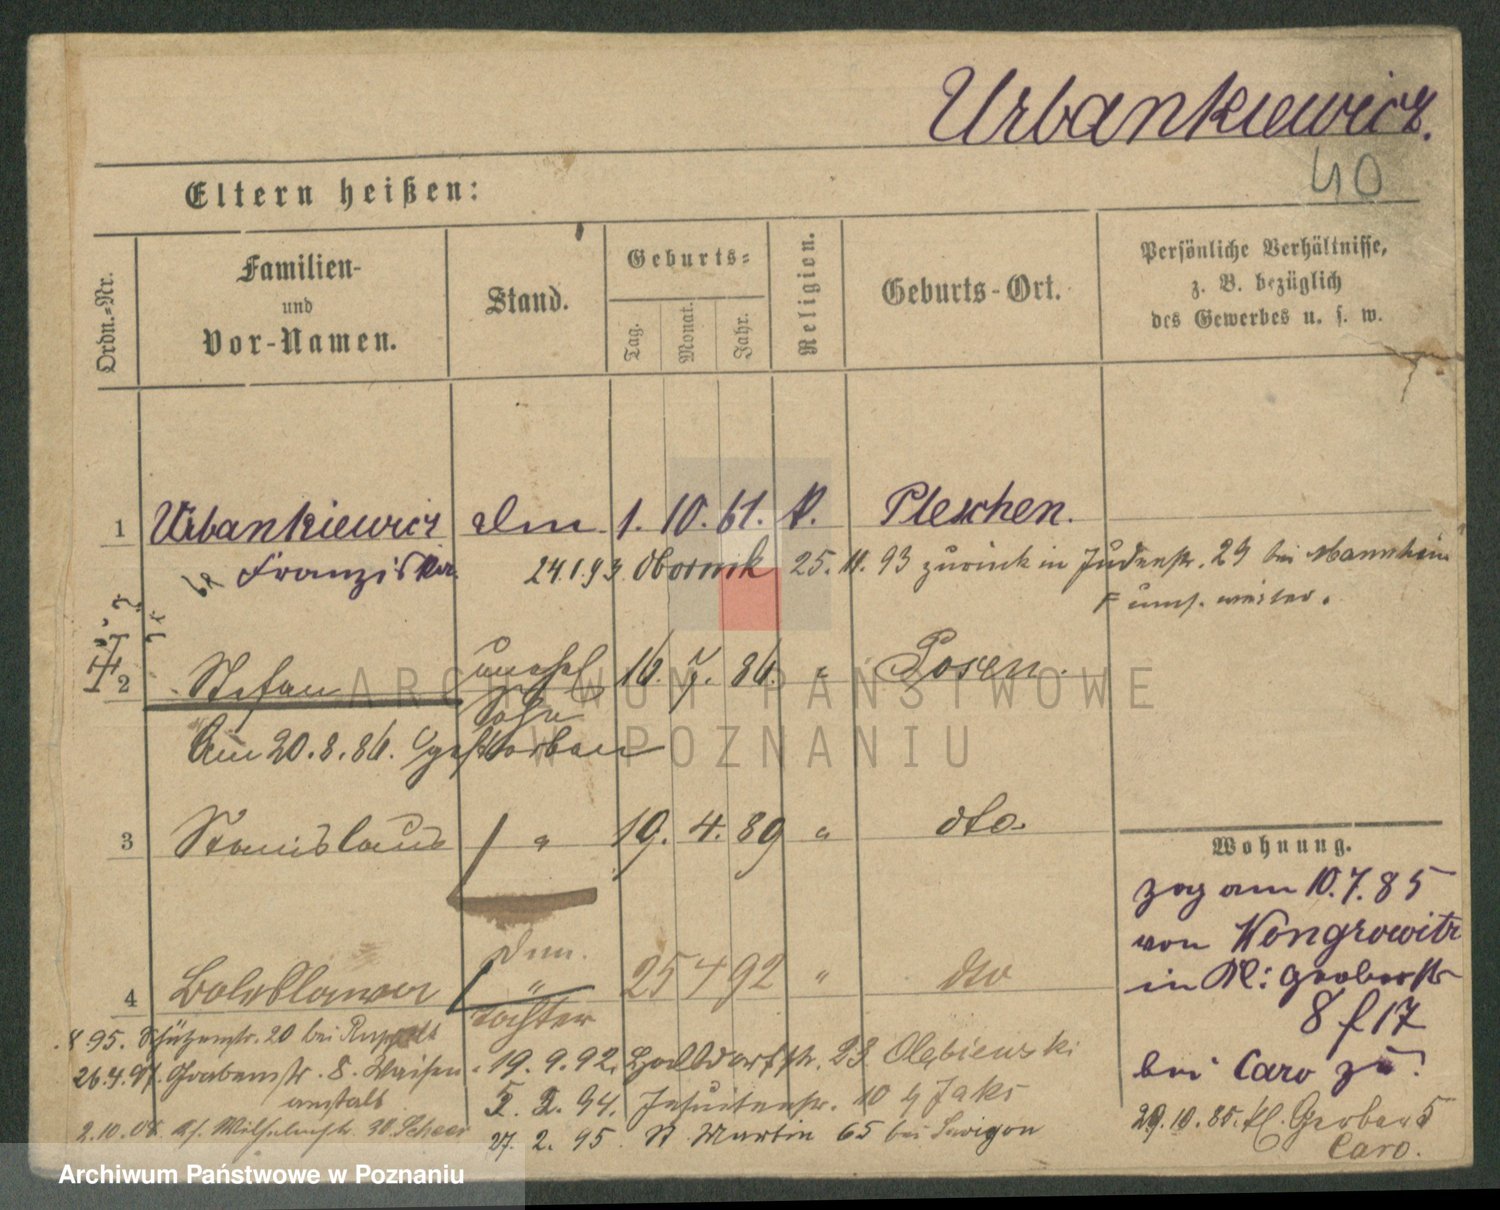 Urbankiewicz.
40
Eltern heißen:
Ordn.-Nr.
Familien-
und
Vor-Namen.
Stand.
Geburts-
Tag.
Monat.
Jahr.
Religion.
Geburts-Ort.
Persönliche Verhältnisse,
z. B. bezüglich
des Gewerbes u. s. w.
1 Urbankiewicz 1. 10. 61. Pleschen.
Franziska 24.1.93. Obornik 25. 11. 93 zurück in Judenstr. 29 bei Mannheim
2 Stefan unehel 16. 7. 86. " Posen.
Sohn
Am 20.8.86. gestorben
3 Stanislaus " 19. 4. 89 " dto.
Wohnung.
zog am 10.7.85
von Wongrowitz
in Kl: Gerberstr
8 f 17
bei Caro zu.
4 Boleslawa " 25 4 92 " dto
Tochter
8 95. Schützenstr. 20 bei
26.4.97. Grabenstr. 8. Waisen
anstalt
19. 9. 92. 23.
5. 2. 94. Jesuitenstr. 10
27. 2. 95. St Martin 65 bei
29.10.85. kl. Gerber 5
Caro.
ARCHIWUM PAŃSTWOWE
W POZNANIU
Archiwum Państwowe w Poznaniu